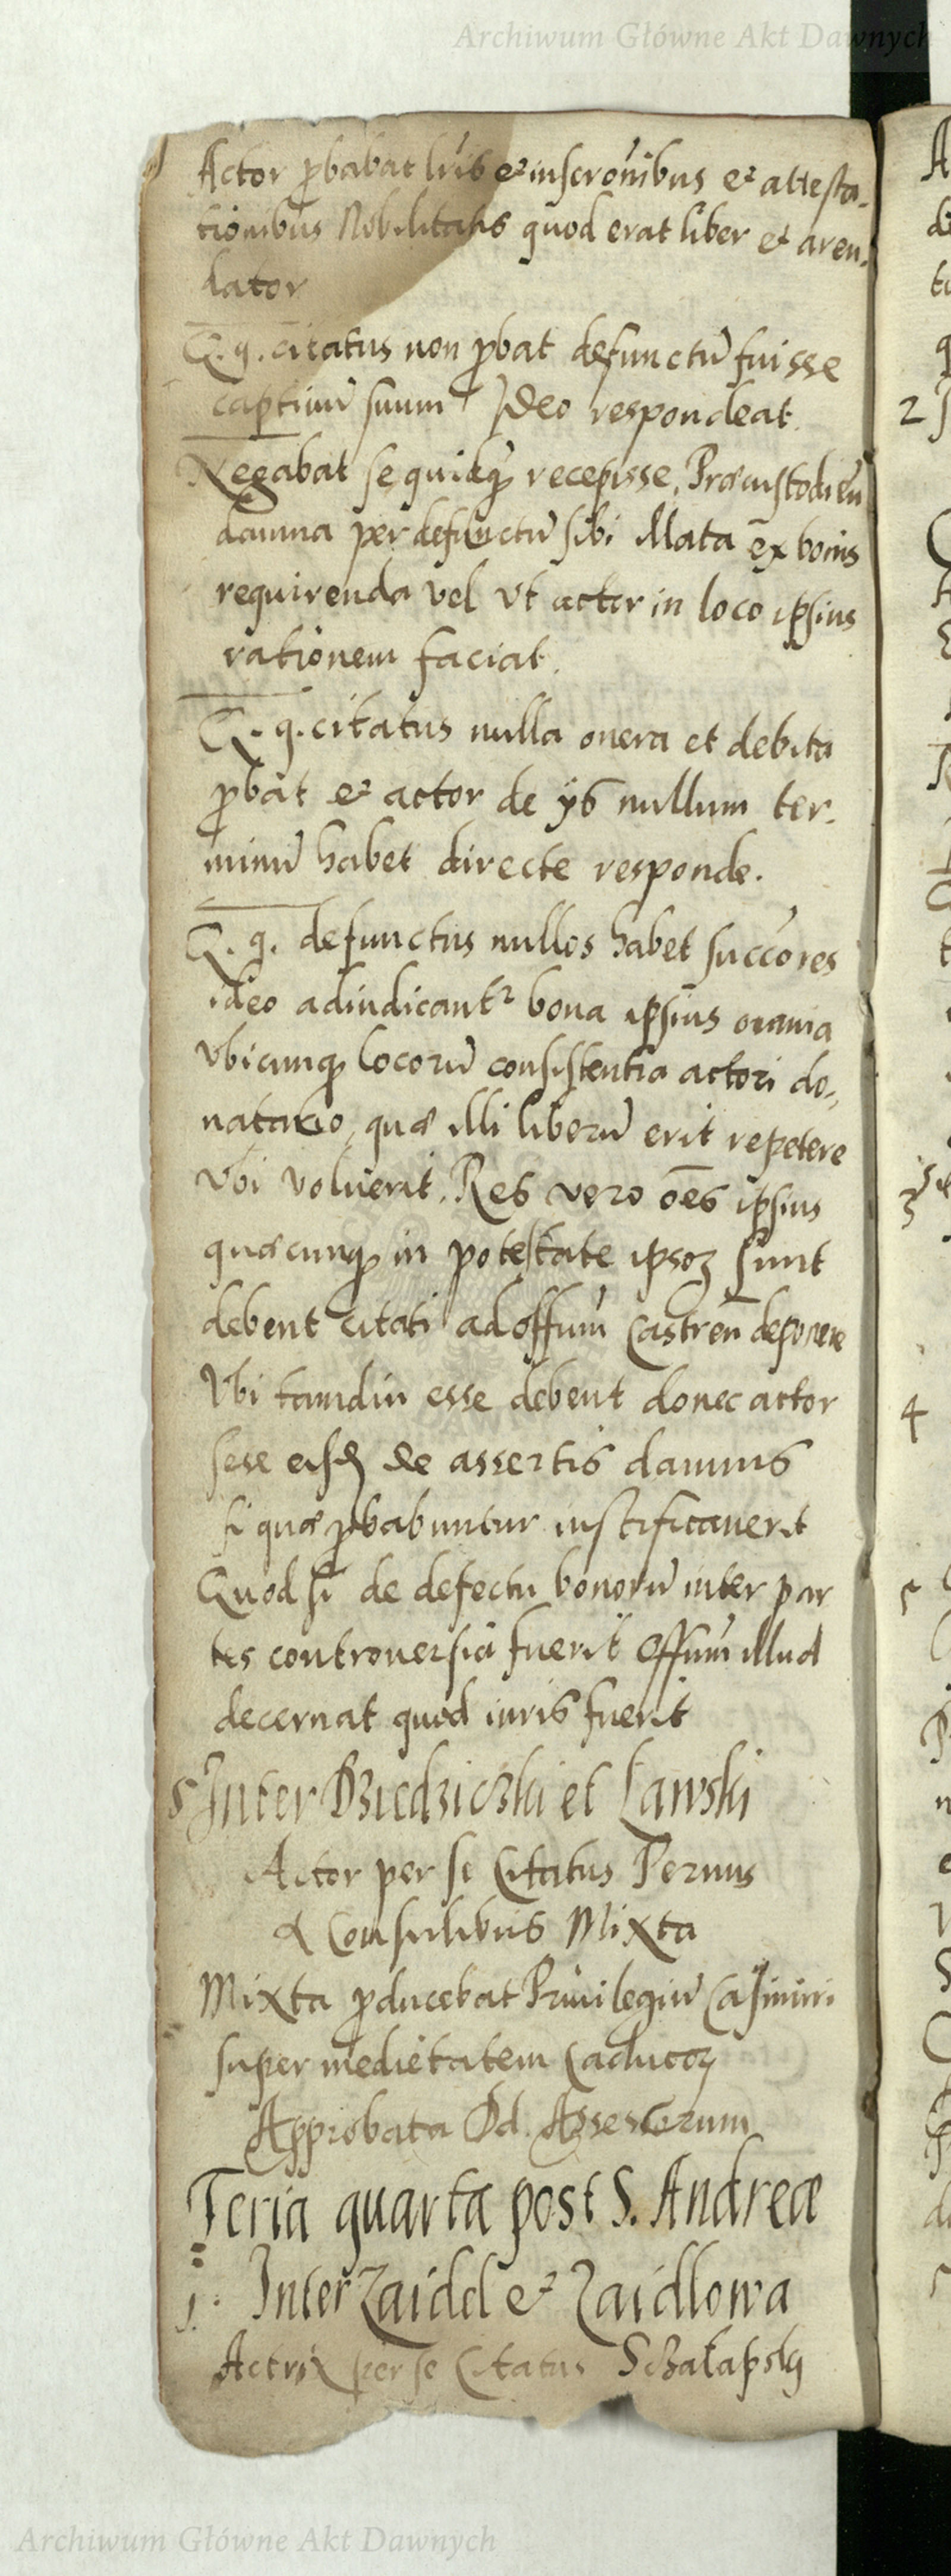 Archiwum Główne Akt Dawnych
Actor p̱babat lr̃is et inscro͂nibus et attesta-
tionibus Nobilitatis quod erat liber et aren-
dator
Q. q. citatus non p̱bat defunctu͂ fuisse
captiuu͂ suum Ideo respondeat.
Negabat se quidq̱ recepisse, Præcustodien͂
damna per defunctu͂ sibi illata ex bonis
requirenda vel Vt actor in loco ipsius
rationem faciat.
Q. q. citatus nulla onera et debita
p̱bat et actor de ijs nullum ter-
minu͂ habet directe responde.
Q. q. defunctus nullos habet succ͂ores
ideo adiudicantr bona ipsius omnia
Vbicunq̱ locoru͂ consistentia actori do-
natario, quæ illi liberu͂ erit repetere
Vbi voluerit. Res vero o͂es ipsius
quæcunq̱ in potestate ipsoꝝ sunt
debent citati ad offum͂ Castren͂ deponere
Vbi tamdiu esse debent donec actor
sese eisḏ de assertis damnis
si quæ p̱babuntur iustificauerit
Quod si de defectu bonoru͂ inter par
tes controuersia fuerit Offum͂ illud
decernat quod iuris fuerit
5 Inter Dziedziczki et Lawski
Actor per se Citatus Pernus
A Consulibus Mixta
Mixta p̱ducebat Priuilegiu͂ Casimiri
super medietatem Caducoꝝ
Approbata Dd. Assessorum
Feria quarta post S. Andreæ
1. Inter Zaidel et Zaidlowa
Actrix per se Citatus Sczakapsky
2
3
4
5
Archiwum Główne Akt Dawnych